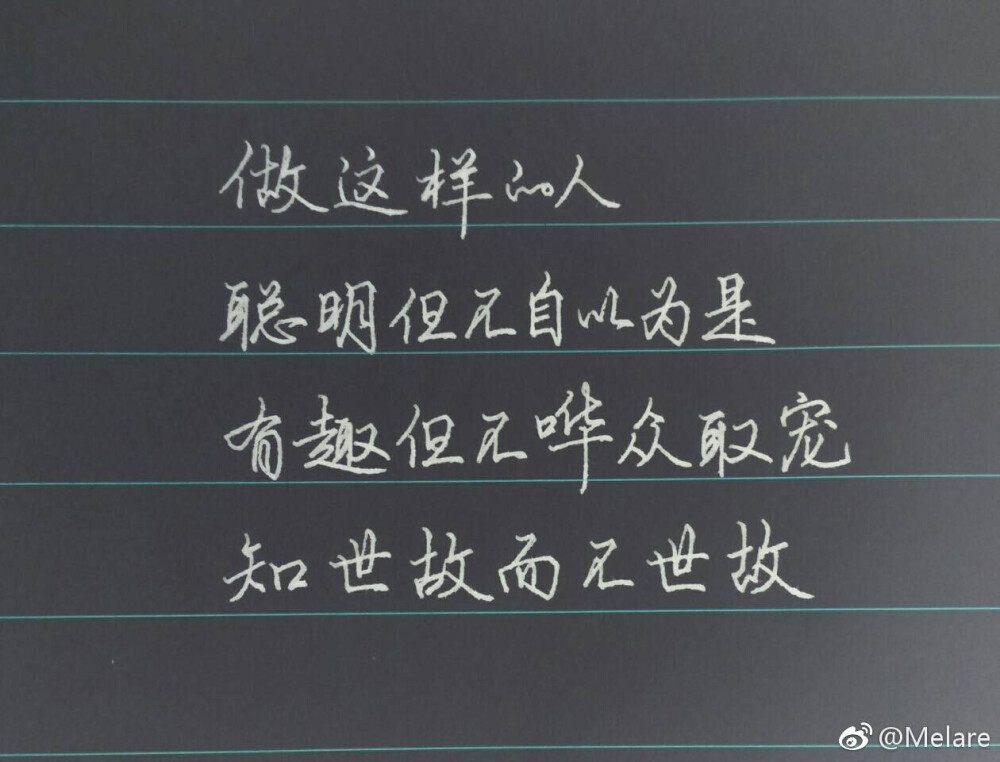 做这样的人
聪明但不自以为是
有趣但不哗众取宠
知世故而不世故
@Melare